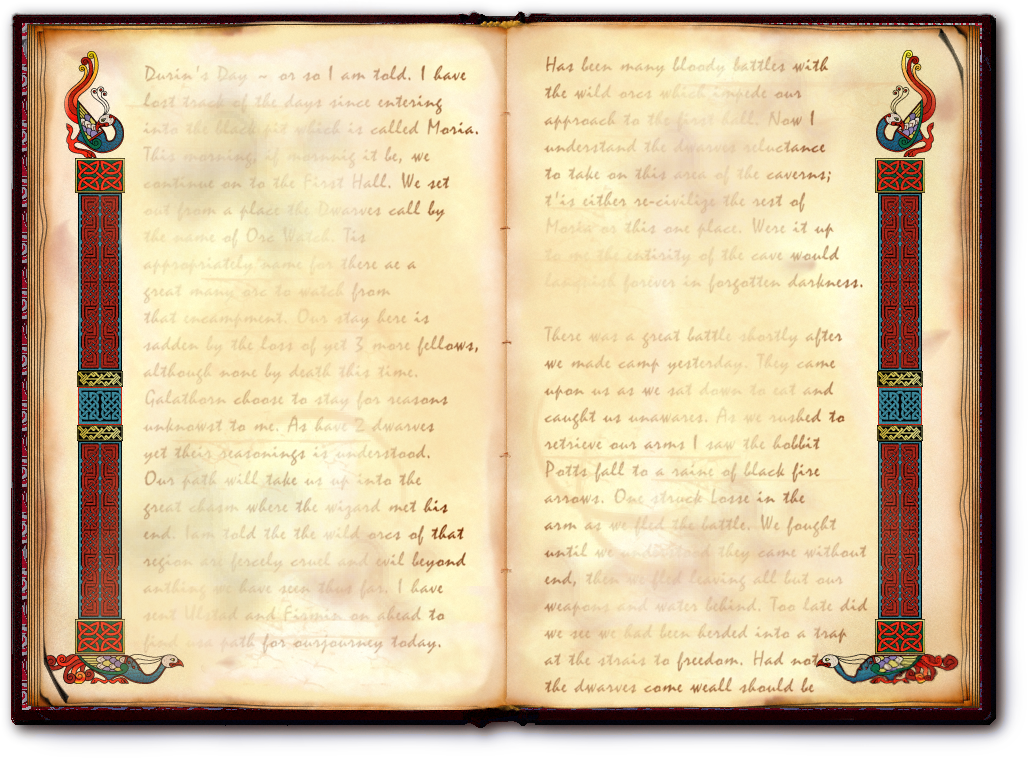 Durin's Day ~ or so I am told. I have
lost track of the days since entering
into the black pit which is called Moria.
This morning, if mornnig it be, we
continue on to the First Hall. We set
out from a place the Dwarves call by
the name of Orc Watch. Tis
appropriately name for there ae a
great many orc to watch from
that encampment. Our stay here is
sadden by the loss of yet 3 more fellows,
although none by death this time.
Galathorn choose to stay for reasons
unknowst to me. As have 2 dwarves
yet their reasonings is understood.
Our path will take us up into the
great chasm where the wizard met his
end. Iam told the the wild orcs of that
region are fercely cruel and evil beyond
anthing we have seen thus far. I have
sent Ulstad and Firmin on ahead to
find usa path for ourjourney today.
Has been many bloody battles with
the wild orcs which impede our
approach to the first hall. Now I
understand the dwarves reluctance
to take on this area of the caverns;
t'is either re-civilize the rest of
Moria or this one place. Were it up
to me the entirity of the cave would
languish forever in forgotten darkness.
There was a great battle shortly after
we made camp yesterday. They came
upon us as we sat down to eat and
caught us unawares. As we rushed to
retrieve our arms I saw the hobbit
Potts fall to a raine of black fire
arrows. One struck Losse in the
arm as we fled the battle. We fought
until we understood they came without
end, then we fled leaving all but our
weapons and water behind. Too late did
we see we had been herded into a trap
at the strais to freedom. Had not
the dwarves come weall should be